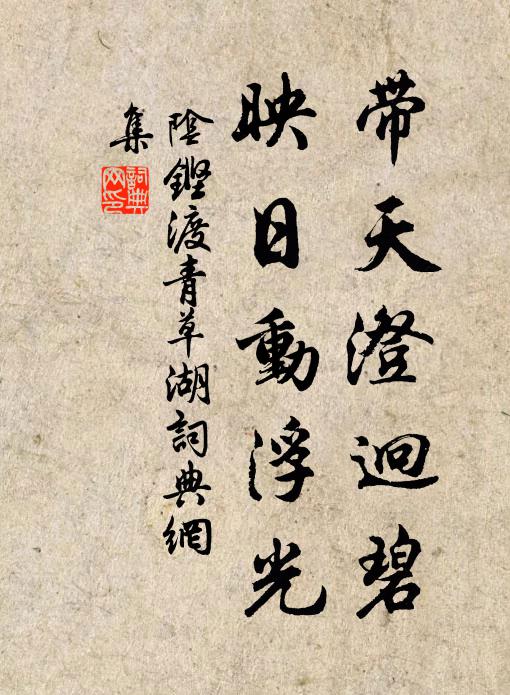 帶天澄迥碧
映日動浮光
陰鏗渡青草湖詞典網
集
詞典
网印